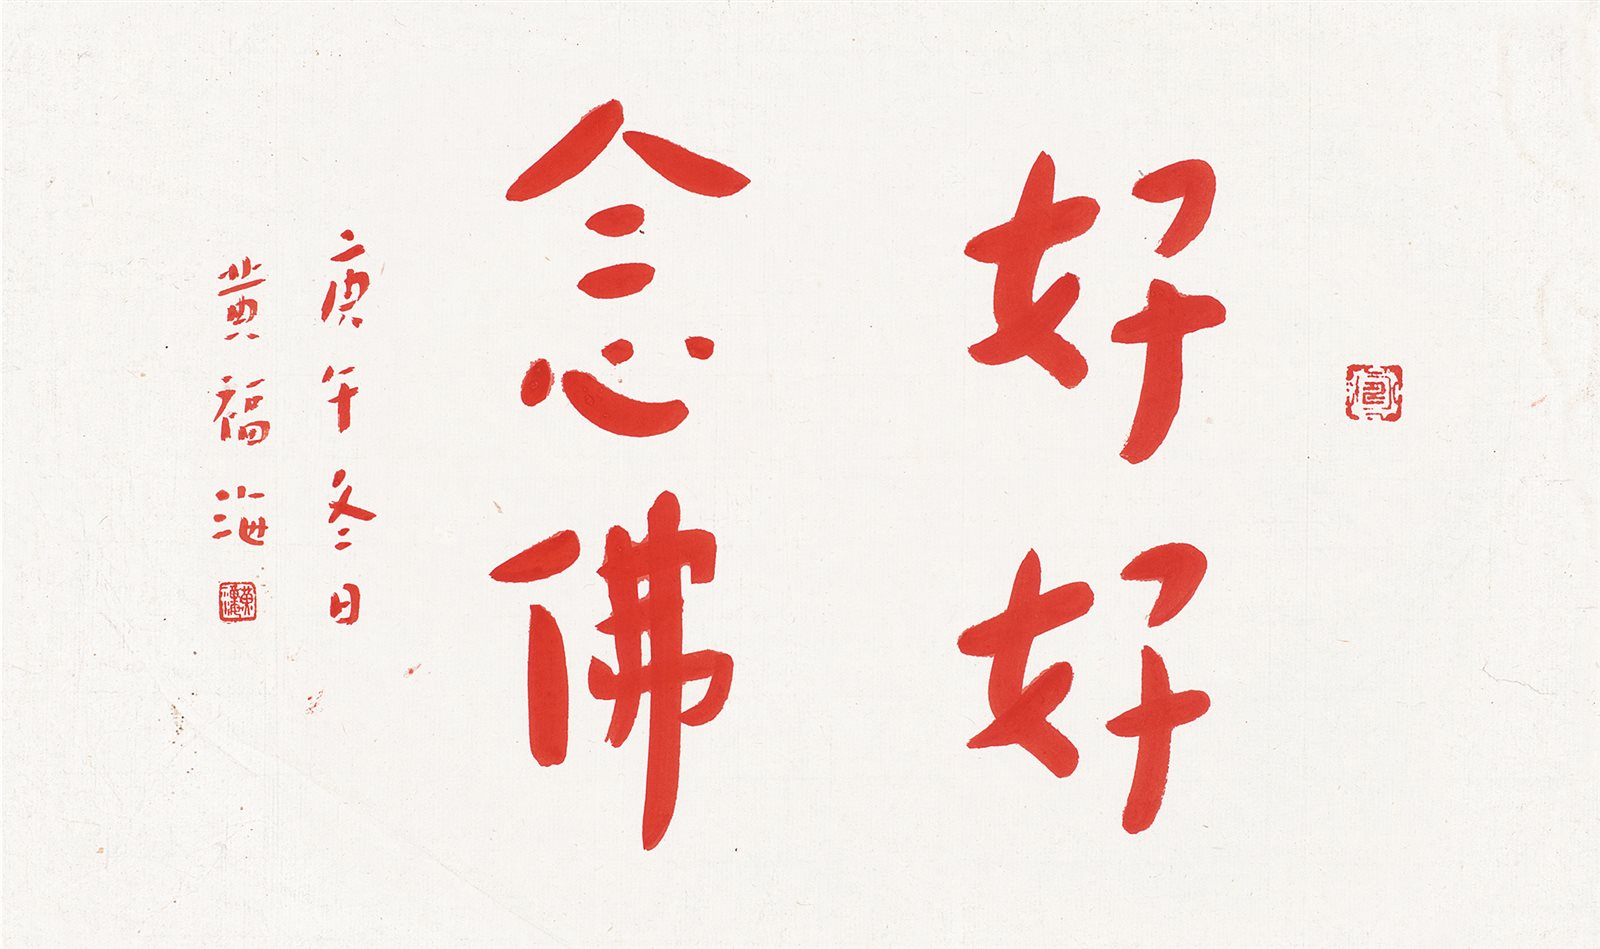 好好
念佛
庚午冬日
黄福海